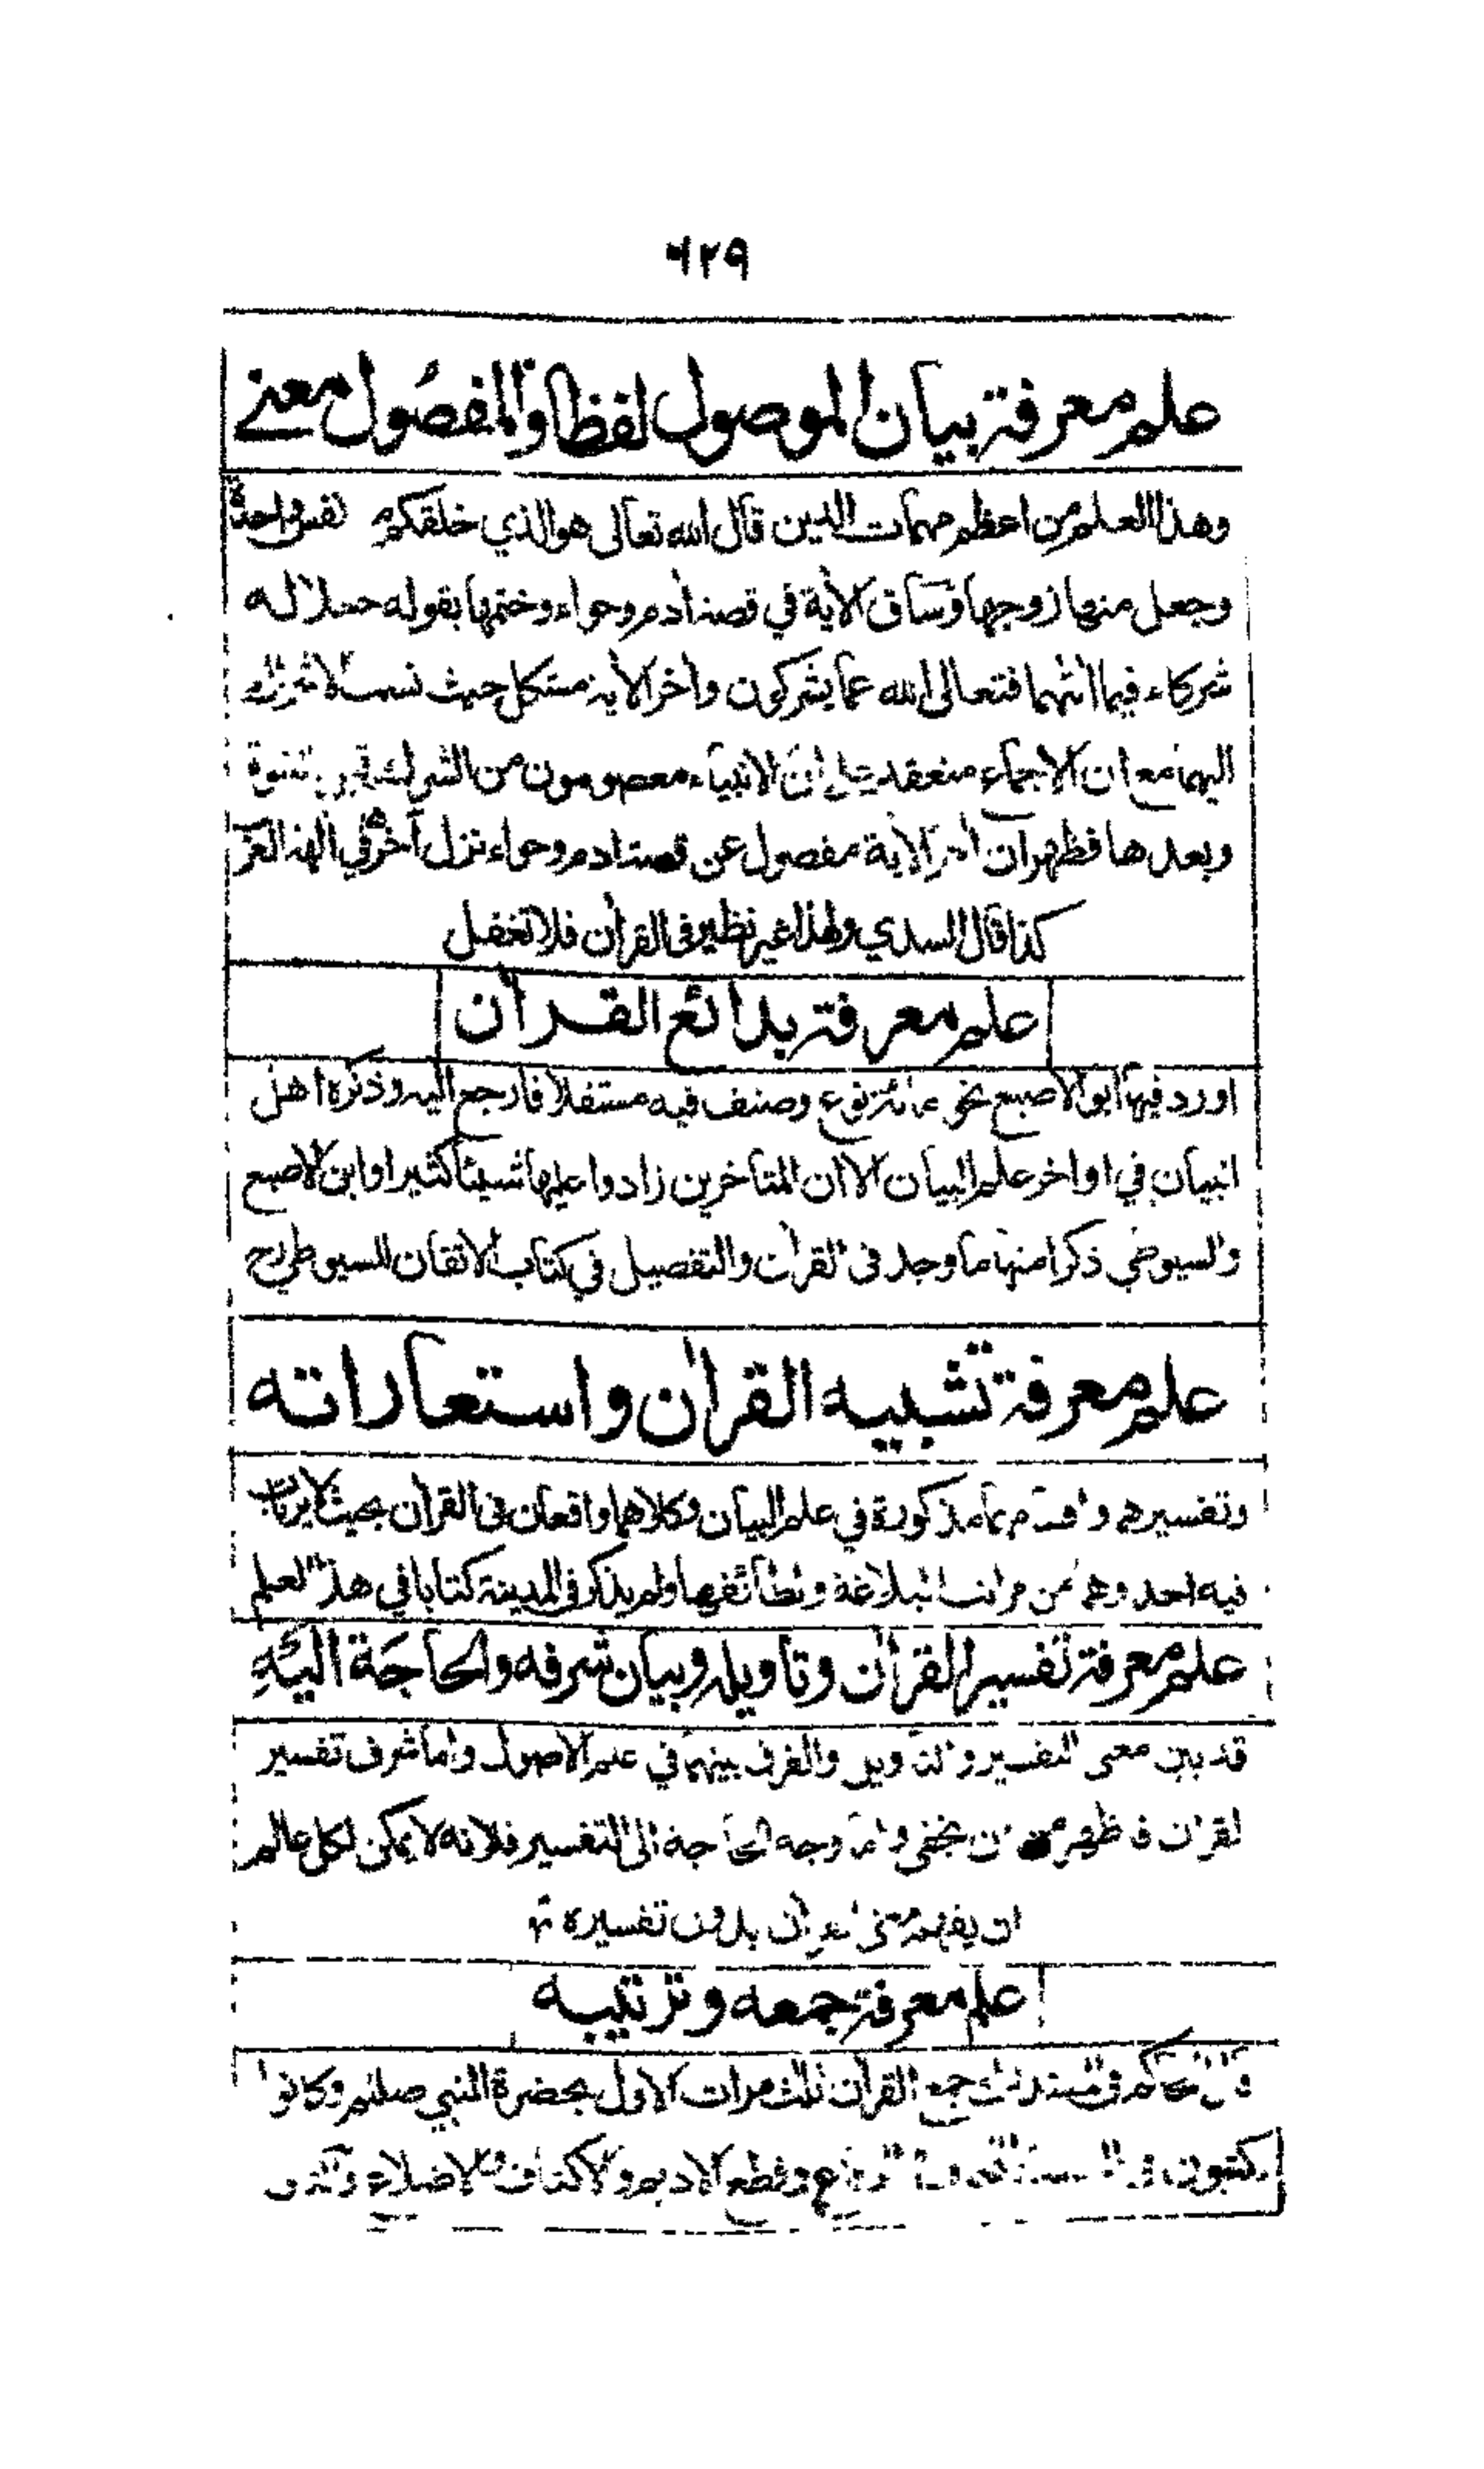 ٦٢٩
علم معرفة بيان الموصول لفظا والمفصول معنے
وهذا العلم من اعظم مهمات الدين قال الله تعالى هو الذي خلقكم نفس واحدة
وجعل منها زوجها وساق الاية في قصة أدم وحواء وختمها بقوله جعلا له
شركاء فيما اتٰهما فتعالى الله عما يشركون وأخر الأية مشكل حيث نسب الاشراك
اليهما مع ان الاجماع منعقد على ان الانبياء معصومون من الشرك قبل النبوة
وبعدها فظهر ان اخر الاية مفصول عن قصة ادم وحواء نزل أخرها في ألهة العرب
كذا قال السدي ولهذا غير نظير فى القرأن فلا تغفل
علم معرفة بدائع القرأن
اورد فيها ابو الاصبع نحو مائة نوع وصنف فيه مستقلا فارجع اليه وذكره اهل
البيان في اواخر علم البيان الا ان المتأخرين زادوا عليها شيئا كثيرا وابن الاصبع
والسيوطي ذكرا منها ما وجد فى القرأن والتفصيل في كتاب الاتقان للسيوطي رح
علم معرفة تشبيه القرأن واستعاراته
وتفسيرهم واقسامهما مذكورة في علم البيان وكلاهما واقعان فى القرأن بحيث لا يرتاب
فيه احد وهما من مراتب البلاغة ولطائفها ولم يذكر فى المدينة كتابا في هذا العلم
علم معرفة تفسير القرأن وتاويله وبيان شرفه والحاجة اليه
قد بين معنى التفسير والتأويل والفرق بينهما في علم الاصول واما شرف تفسير
القرأن فاظهر من ان يخفى واما وجه الحاجة الى التفسير فلانه لا يمكن لكل عالم
ان يفهم معنى القرأن بدون تفسيره
علم معرفة جمعه وترتيبه
قال الحاكم فى المستدرك جمع القرأن ثلث مرات الاول بحضرة النبي صللم وكانوا
يكتبون فى وقطع الاديم والاكتاف والاضلاع